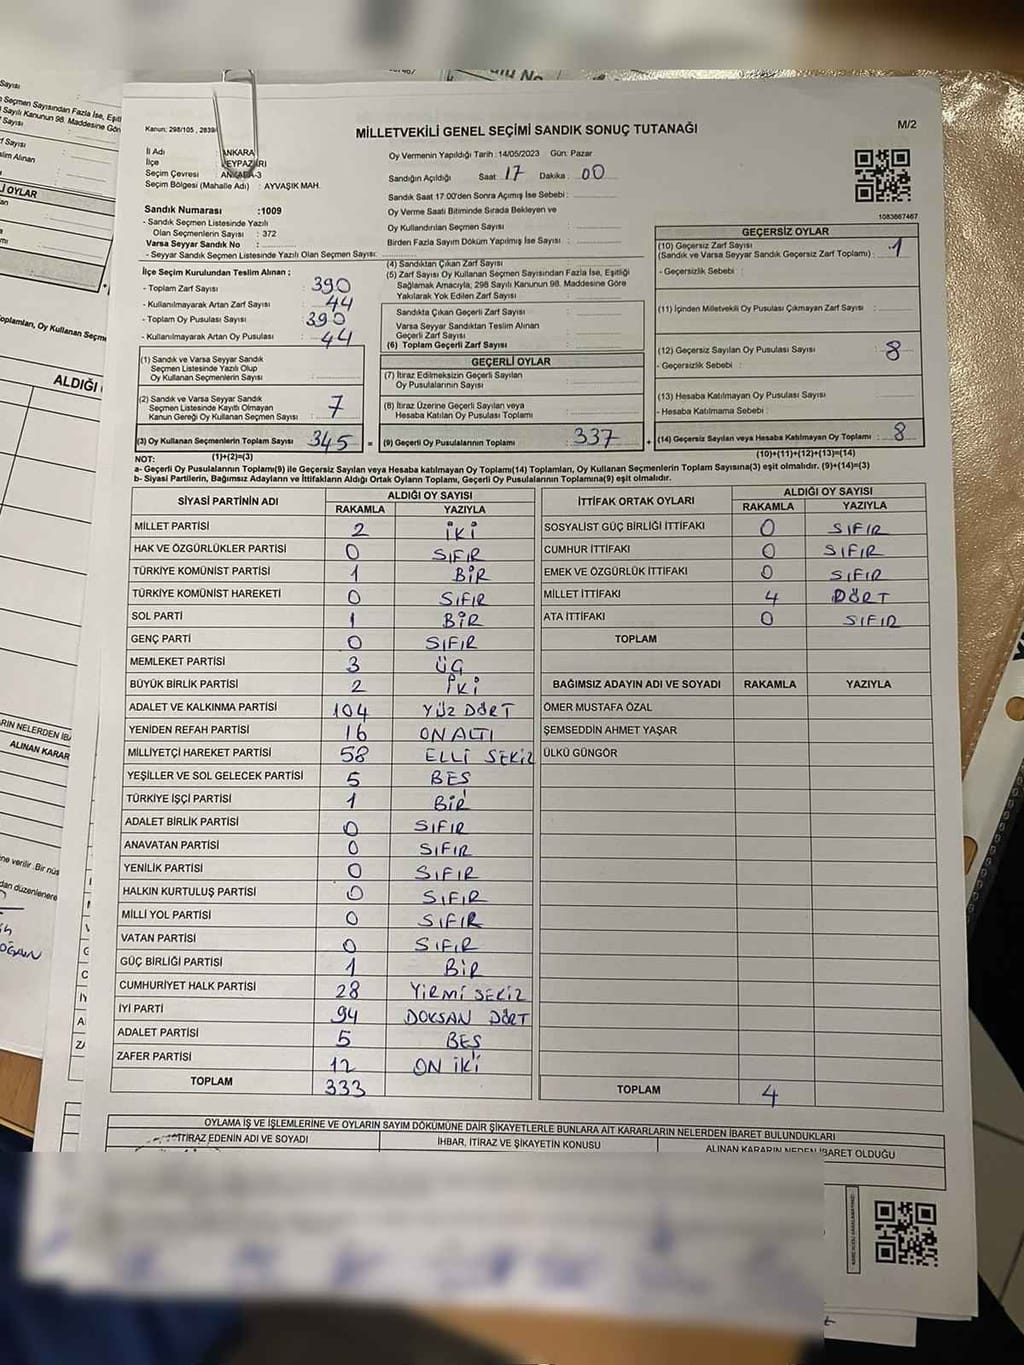 Kanun: 298/105 , 2839/
MİLLETVEKİLİ GENEL SEÇİMİ SANDIK SONUÇ TUTANAĞI
M/2
İli Adı : ANKARA
İlçe : BEYPAZARI
Seçim Çevresi : ANKARA-3
Seçim Bölgesi (Mahalle Adı) : AYVAŞIK MAH.
Sandık Numarası :1009
- Sandık Seçmen Listesinde Yazılı
Olan Seçmenlerin Sayısı : 372
Varsa Seyyar Sandık No :
- Seyyar Sandık Seçmen Listesinde Yazılı Olan Seçmen Sayısı:
Oy Vermenin Yapıldığı Tarih :14/05/2023 Gün: Pazar
Sandığın Açıldığı Saat 17 Dakika : 00
Sandık Saat 17:00'den Sonra Açılmış İse Sebebi :
Oy Verme Saati Bitiminde Sırada Bekleyen ve
Oy Kullandırılan Seçmen Sayısı :
Birden Fazla Sayım Döküm Yapılmış İse Sayısı :
1083867467
İlçe Seçim Kurulundan Teslim Alınan ;
- Toplam Zarf Sayısı : 390
- Kullanılmayarak Artan Zarf Sayısı : 44
- Toplam Oy Pusulası Sayısı : 390
- Kullanılmayarak Artan Oy Pusulası : 44
(1) Sandık ve Varsa Seyyar Sandık
Seçmen Listesinde Yazılı Olup
Oy Kullanan Seçmenlerin Sayısı :
(2) Sandık ve Varsa Seyyar Sandık
Seçmen Listesinde Kayıtlı Olmayan
Kanun Gereği Oy Kullanan Seçmen Sayısı : 7
(3) Oy Kullanan Seçmenlerin Toplam Sayısı : 345 =
(4) Sandıktan Çıkan Zarf Sayısı :
(5) Zarf Sayısı Oy Kullanan Seçmen Sayısından Fazla İse, Eşitliği
Sağlamak Amacıyla, 298 Sayılı Kanunun 98. Maddesine Göre
Yakılarak Yok Edilen Zarf Sayısı :
Sandıkta Çıkan Geçerli Zarf Sayısı :
Varsa Seyyar Sandıktan Teslim Alınan
Geçerli Zarf Sayısı :
(6) Toplam Geçerli Zarf Sayısı :
GEÇERLİ OYLAR
(7) İtiraz Edilmeksizin Geçerli Sayılan
Oy Pusulalarının Sayısı :
(8) İtiraz Üzerine Geçerli Sayılan veya
Hesaba Katılan Oy Pusulası Toplamı :
(9) Geçerli Oy Pusulalarının Toplamı : 337 +
GEÇERSİZ OYLAR
(10) Geçersiz Zarf Sayısı
(Sandık ve Varsa Seyyar Sandık Geçersiz Zarf Toplamı) : 1
- Geçersizlik Sebebi :
(11) İçinden Milletvekili Oy Pusulası Çıkmayan Zarf Sayısı :
(12) Geçersiz Sayılan Oy Pusulası Sayısı : 8
- Geçersizlik Sebebi :
(13) Hesaba Katılmayan Oy Pusulası Sayısı :
- Hesaba Katılmama Sebebi :
(14) Geçersiz Sayılan veya Hesaba Katılmayan Oy Toplamı : 8
NOT: (1)+(2)=(3) (10)+(11)+(12)+(13)=(14)
a- Geçerli Oy Pusulalarının Toplamı(9) ile Geçersiz Sayılan veya Hesaba katılmayan Oy Toplamı(14) Toplamları, Oy Kullanan Seçmenlerin Toplam Sayısına(3) eşit olmalıdır. (9)+(14)=(3)
b- Siyasi Partilerin, Bağımsız Adayların ve İttifakların Aldığı Ortak Oyların Toplamı, Geçerli Oy Pusulalarının Toplamına(9) eşit olmalıdır.
SİYASİ PARTİNİN ADI ALDIĞI OY SAYISI
RAKAMLA YAZIYLA
MİLLET PARTİSİ 2 İKİ
HAK VE ÖZGÜRLÜKLER PARTİSİ 0 SIFIR
TÜRKİYE KOMÜNİST PARTİSİ 1 BİR
TÜRKİYE KOMÜNİST HAREKETİ 0 SIFIR
SOL PARTİ 1 BİR
GENÇ PARTİ 0 SIFIR
MEMLEKET PARTİSİ 3 ÜÇ
BÜYÜK BİRLİK PARTİSİ 2 İKİ
ADALET VE KALKINMA PARTİSİ 104 YÜZ DÖRT
YENİDEN REFAH PARTİSİ 16 ON ALTI
MİLLİYETÇİ HAREKET PARTİSİ 58 ELLİ SEKİZ
YEŞİLLER VE SOL GELECEK PARTİSİ 5 BEŞ
TÜRKİYE İŞÇİ PARTİSİ 1 BİR
ADALET BİRLİK PARTİSİ 0 SIFIR
ANAVATAN PARTİSİ 0 SIFIR
YENİLİK PARTİSİ 0 SIFIR
HALKIN KURTULUŞ PARTİSİ 0 SIFIR
MİLLİ YOL PARTİSİ 0 SIFIR
VATAN PARTİSİ 0 SIFIR
GÜÇ BİRLİĞİ PARTİSİ 1 BİR
CUMHURİYET HALK PARTİSİ 28 YİRMİ SEKİZ
İYİ PARTİ 94 DOKSAN DÖRT
ADALET PARTİSİ 5 BEŞ
ZAFER PARTİSİ 12 ON İKİ
TOPLAM 333
İTTİFAK ORTAK OYLARI ALDIĞI OY SAYISI
RAKAMLA YAZIYLA
SOSYALİST GÜÇ BİRLİĞİ İTTİFAKI 0 SIFIR
CUMHUR İTTİFAKI 0 SIFIR
EMEK VE ÖZGÜRLÜK İTTİFAKI 0 SIFIR
MİLLET İTTİFAKI 4 DÖRT
ATA İTTİFAKI 0 SIFIR
TOPLAM
BAĞIMSIZ ADAYIN ADI VE SOYADI RAKAMLA YAZIYLA
ÖMER MUSTAFA ÖZAL
ŞEMSEDDİN AHMET YAŞAR
ÜLKÜ GÜNGÖR
TOPLAM 4
OYLAMA İŞ VE İŞLEMLERİNE VE OYLARIN SAYIM DÖKÜMÜNE DAİR ŞİKAYETLERLE BUNLARA AİT KARARLARIN NELERDEN İBARET BULUNDUKLARI
İTİRAZ EDENİN ADI VE SOYADI İHBAR, İTİRAZ VE ŞİKAYETİN KONUSU ALINAN KARARIN NEDEN İBARET OLDUĞU